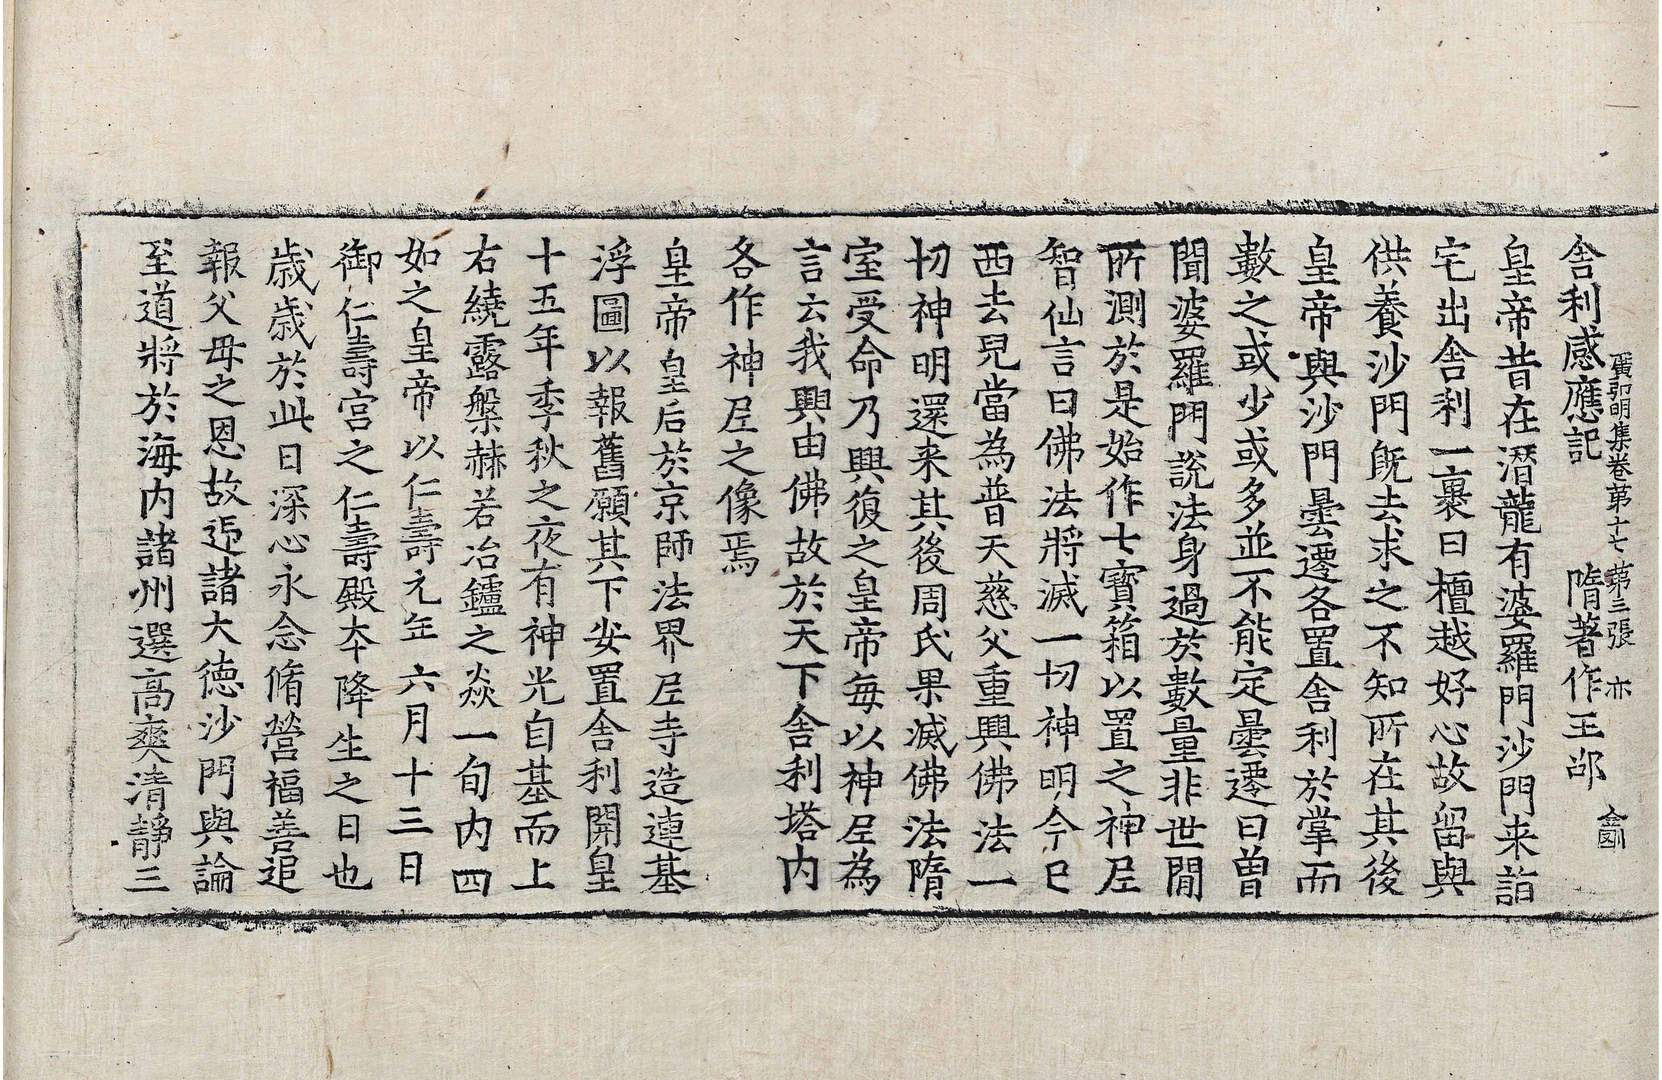 廣弘明集卷第十七 第三張 亦
舎利感應記 隋著作王邵
皇帝昔在潛龍有婆羅門沙門来詣
宅出舎利一裹曰檀越好心故留與
供養沙門旣去求之不知所在其後
皇帝與沙門曇遷各置舎利於掌而
數之或少或多並不能定曇遷曰曽
聞婆羅門説法身過於數量非世間
所測於是始作七寳箱以置之神尼
智仙言曰佛法將滅一切神明今已
西去兒當為普天慈父重興佛法一
切神明還来其後周氏果滅佛法隋
室受命乃興復之皇帝每以神尼為
言云我興由佛故於天下舎利塔内
各作神尼之像焉
皇帝皇后於京師法界尼寺造連基
浮圖以報舊願其下安置舎利開皇
十五年季秋之夜有神光自基而上
右繞露槃赫若冶鑪之焱一旬内四
如之皇帝以仁壽元年六月十三日
御仁壽宫之仁壽殿本降生之日也
歳歳於此日深心永念脩營福善追
報父母之恩故延諸大德沙門與論
至道將於海内諸州選髙爽清静三